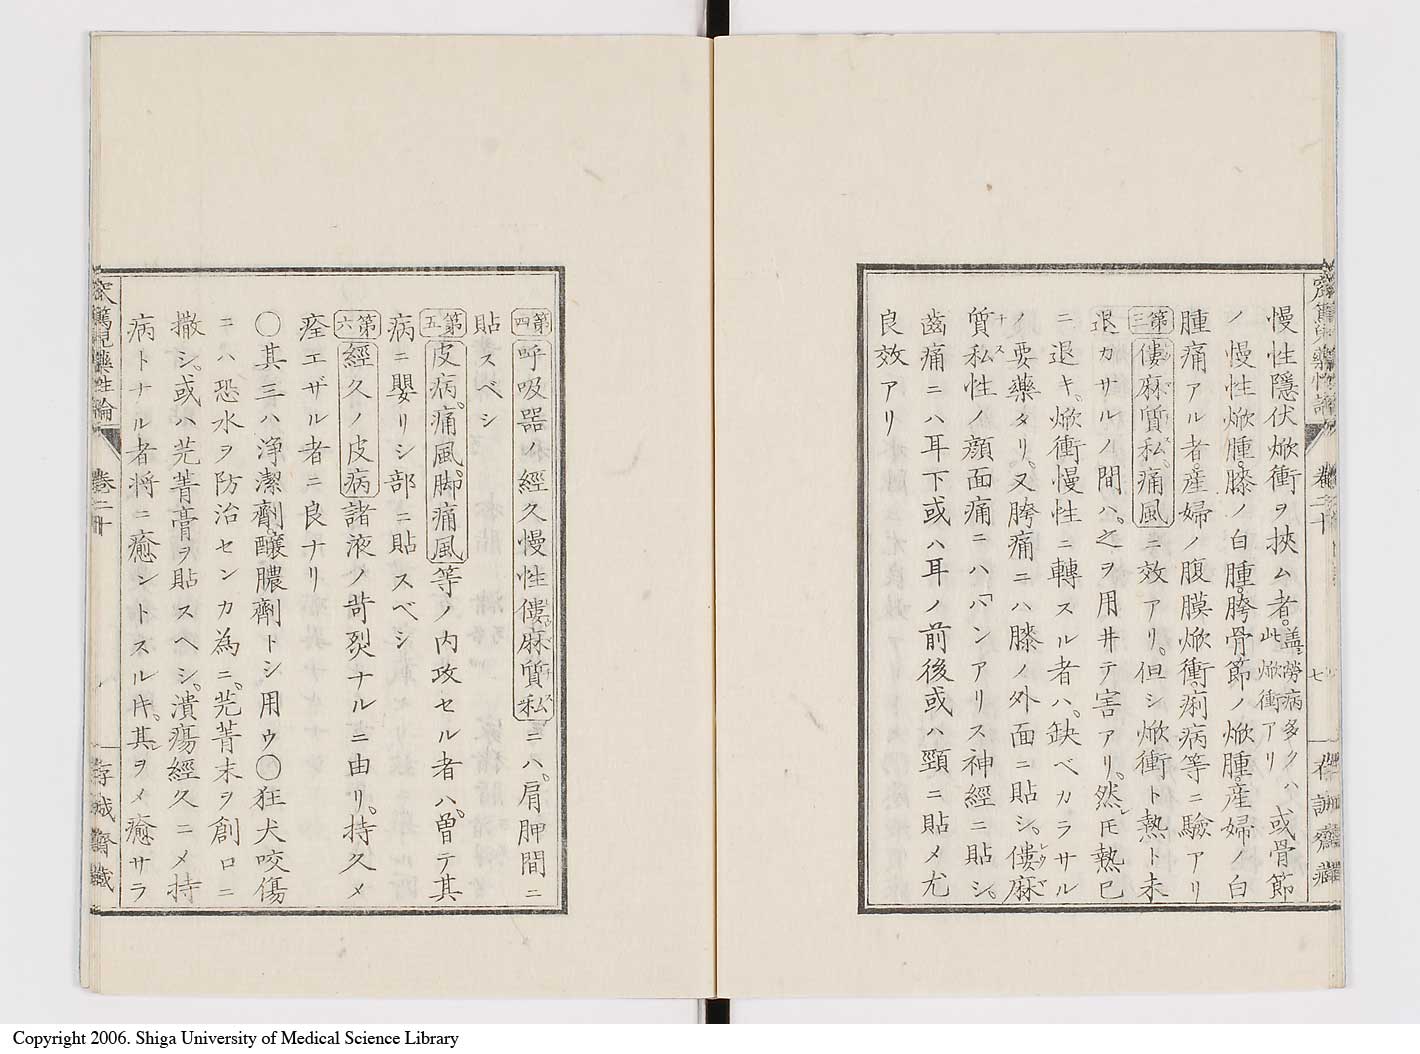 慢性隱伏焮衝ヲ挾ム者。盖勞病多クハ此焮衝アリ或骨節
ノ慢性焮腫。膝ノ白腫。胯骨節ノ焮腫。産婦ノ白
腫痛アル者。産婦ノ腹膜焮衝。痢病等ニ驗アリ
第三 僂麻質私。痛風ニ效アリ。但シ焮衝ト熱ト未
退カザルノ間ハ。之ヲ用井テ害アリ。然レ𪜈熱已
ニ退キ。焮衝慢性ニ轉スル者ハ。缺ベカラサル
ノ要藥タリ。又胯痛ニハ膝ノ外面ニ貼シ。僂麻
質私性ノ顔面痛ニハ「パンアリス神經ニ貼シ。
齒痛ニハ耳下或ハ耳ノ前後或ハ頸ニ貼メ尤
良效アリ
第四 呼吸器ノ經久慢性僂麻質私ニハ。肩胛間ニ
貼スベシ
第五 皮病。痛風。脚痛風等ノ内攻セル者ハ。曽テ其
病ニ嬰リシ部ニ貼スベシ
第六 經久ノ皮病諸液ノ苛烈ナルニ由リ。持久メ
痊エザル者ニ良ナリ
〇其三ハ浄潔劑釀膿劑トシ用ウ〇狂犬咬傷
ニハ恐水ヲ防治センカ為ニ。芫菁末ヲ創口ニ
撒シ。或ハ芫菁膏ヲ貼スヘシ。潰瘍經久ニメ持
病トナル者将ニ癒ントスル𪜈。其ヲメ癒サラ
窊篤兒藥性論
卷二十
七
存誠齋藏